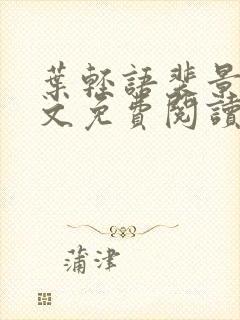 葉輕語裴景
文免費閱讀
蒲津